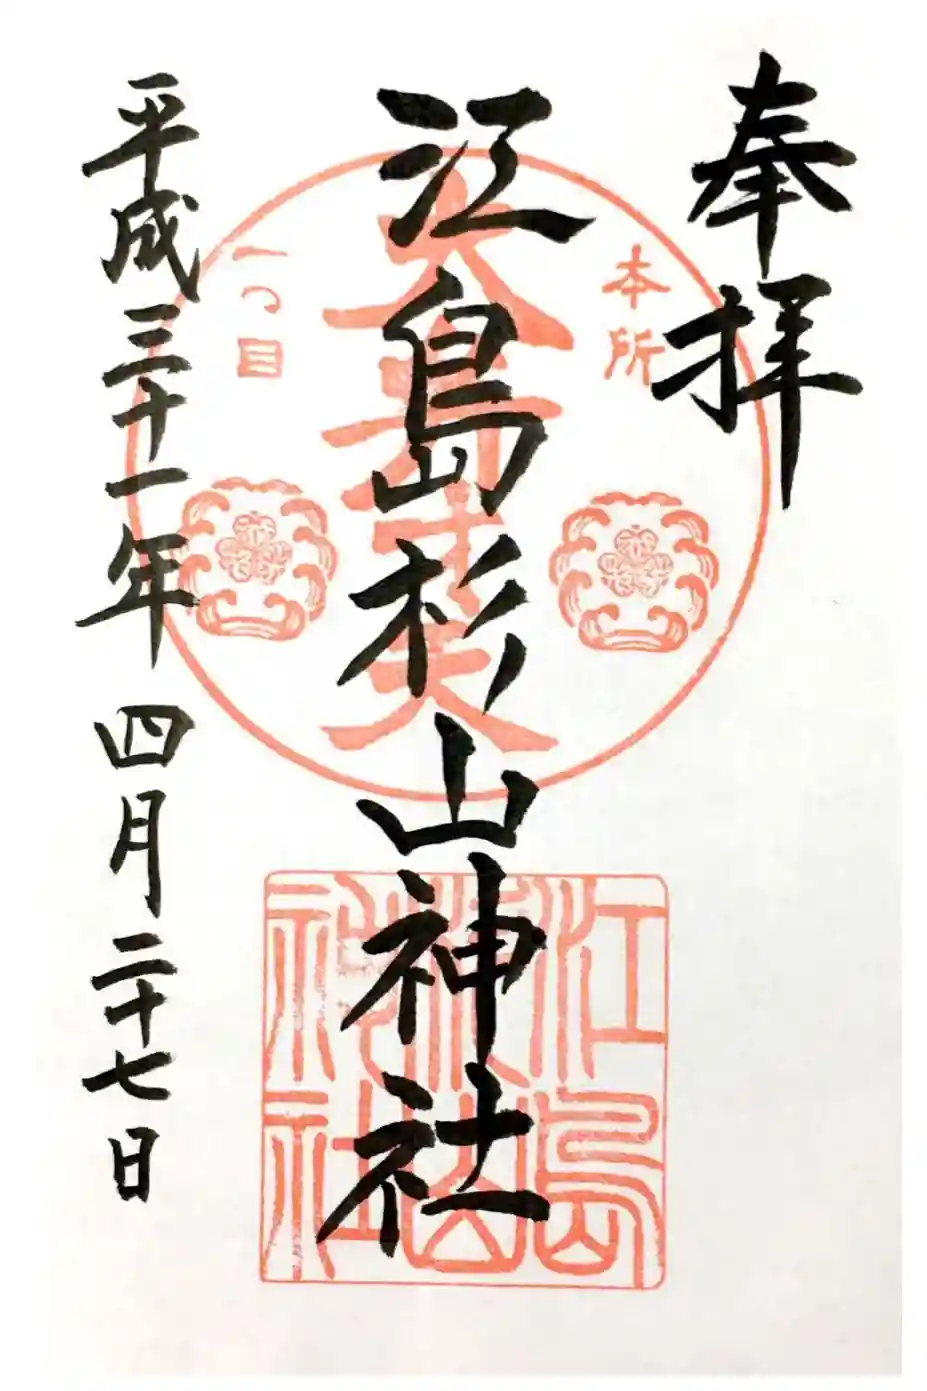 奉拝
本所
江島杉山神社
一つ目
江島
杉山
神社
平成三十一年 四月二十七日